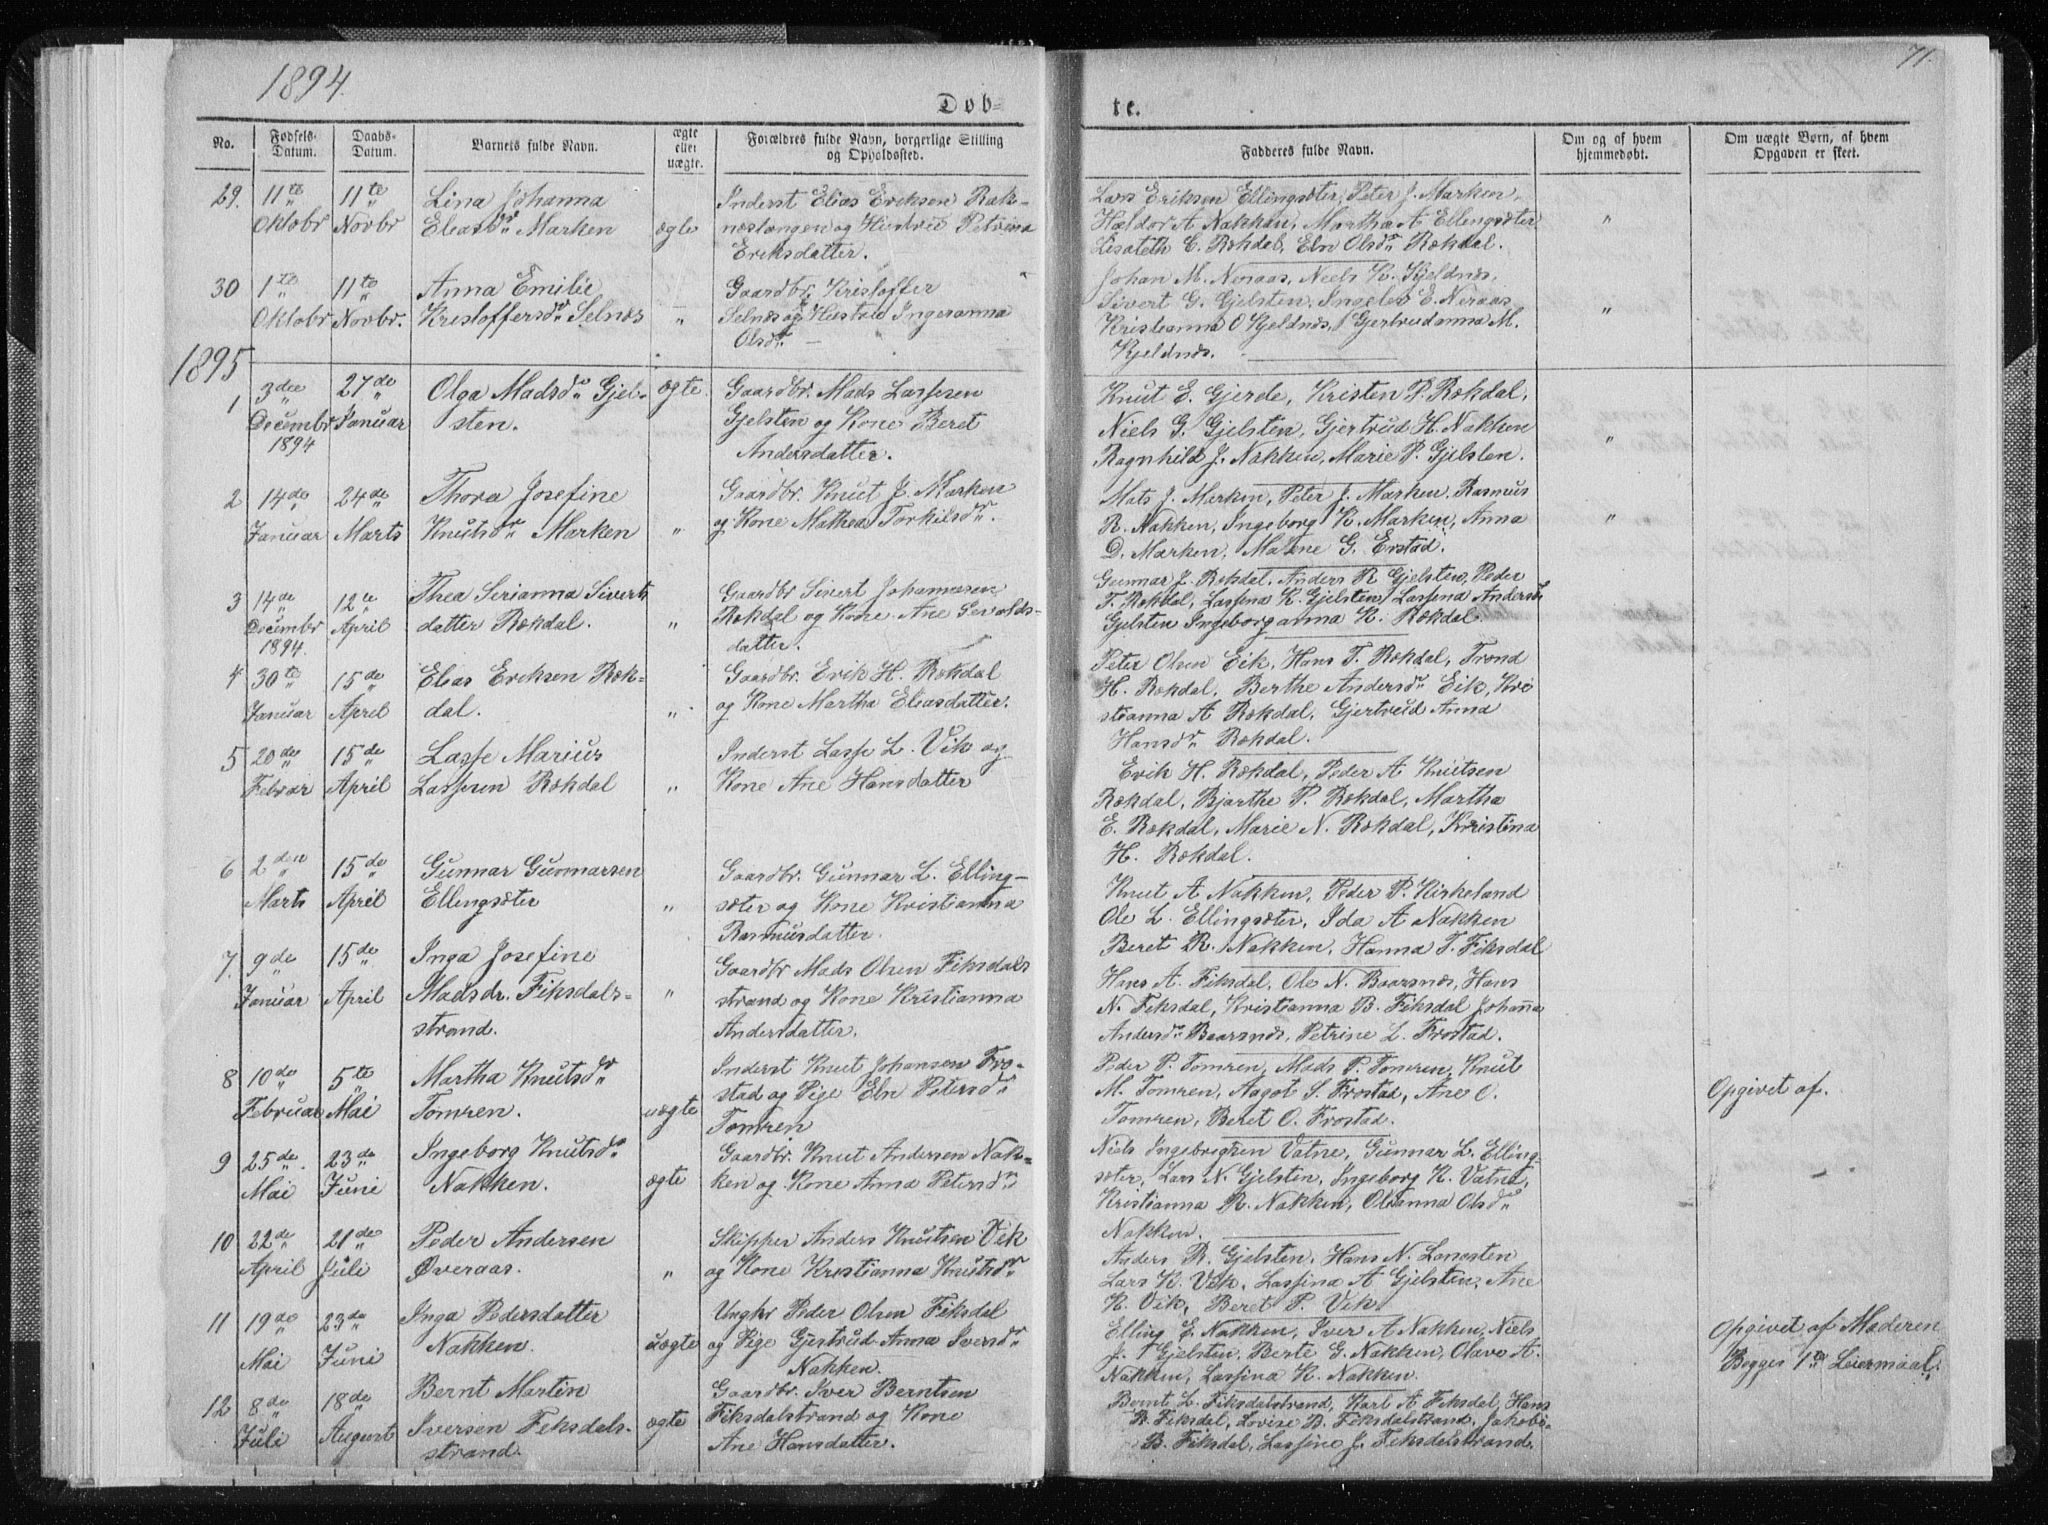 1894.
71.
Døb-
te.
No.
Fødsels-
Datum.
Daabs-
Datum.
Barnets fulde Navn.
ægte
eller
uægte.
Forældres fulde Navn, borgerlige Stilling
og Opholdssted.
Fadderes fulde Navn.
Om og af hvem
hjemmedøbt.
Om uægte Børn, af hvem
Opgaven er skeet.
29. 11te 11te Lina Johanna Inderst Elias Eriksen Rak-
Oktobr Novbr Eliasdr Marken ægte næstangen og Hustru Petrina
Eriksdatter.
Lars Eriksen Ellingsæter, Peter J. Marken,
Haldor A Nakken, Martha A Ellingsæter "
Lisabeth E. Rekdal, Eln Olsdr Rekdal.
30 1te 11te Anna Emilie Gaardbr. Kristoffer
Oktobr Novbr. Kristoffersdr Selnæs " Selnæs og Hustru Ingeranna
Olsdr —
Johan M. Neraas, Niels K. Kjeldnæs,
Sivert G. Gjelsten, Ingeleb E. Neraas "
Kristianna O Kjeldnæs, Gjertrudanna M.
Kjeldnæs.
1895
1 3die 27de Olga Madsdr Gjel- ægte. Gaardbr. Mads Lassesen
Decembr Januar sten. Gjelsten og Kone Beret
1894 Andersdatter.
Knut E. Gjerde, Kristen P. Rekdal,
Niels G. Gjelsten, Gjertrud H. Nakken "
Ragnhild J. Nakken, Marie P. Gjelsten.
2 14de 24de Thora Josefine Gaardbr. Knut J. Marken
Januar Marts Knutsdr Marken " og Kone Mathea Torkilsdr.
Mats J. Marken, Peter J. Marken, Rasmus
R. Nakken, Ingeborg K. Marken, Anna "
D. Marken, Malene G. Erstad.
3 14de 12te Thea Serianna Siverts Gaardbr Sivert Johannesen
Decembr April datter Rekdal. " Rekdal og Kone Ane Sevalds-
1894. datter.
Gunnar J. Rekdal, Anders R Gjelsten, Peder
T. Rekdal, Lassina K. Gjelsten, Lassina Andersdr
Gjelsten Ingeborganna K. Rekdal.
4 30te 15de Elias Eriksen Rek- Gaardbr. Erik H. Rekdal
Januar April dal. " og Kone Martha Eliasdatter.
Peter Olsen Eik, Hans T. Rekdal, Trond
H. Rekdal, Berthe Andersdr Eik, Kri
stianna A Rekdal, Gjertrud Anna
Hansdr Rekdal.
5 20de 15de Lasse Marius Inderst Lasse L. Vik og
Februar April Lassesen Rekdal " Kone Ane Hansdatter
Erik H. Rekdal, Peder A Knutsen
Rekdal, Bjarthe P. Rekdal, Martha
E. Rekdal, Marie N. Rekdal, Kristina
H. Rekdal.
6 2den 15de Gunnar Gunnarsen Gaardbr. Gunnar L. Elling-
Marts April Ellingsæter " sæter og Kone Kristianna
Rasmusdatter.
Knut A Nakken, Peder P. Kirkeland
Ole L. Ellingsæter, Ida A Nakken
Beret R. Nakken, Hanna T. Fiksdal
7. 9de 15de Inga Josefine Gaardbr Mads Olsen Fiksdals
Januar April Madsdr. Fiksdals- " strand og Kone Kristianna
strand. Andersdatter.
Hans A. Fiksdal, Ole N. Baarsnæs, Hans
N. Fiksdal, Kristianna B. Fiksdal Johanna
Andersdr Baarsnæs, Petrine L. Frostad.
8 10de 5te Martha Knutsdr Inderst Knut Johansen Fro-
Februar Mai Tomren. uægte stad og Pige Eln Petersdr
Tomren
Peder P. Tomren, Mads P. Tomren, Knut
M. Tomren, Aagot S. Frostad, Ane O. Opgivet af.
Tomren, Beret O. Frostad.
9 25de 23de Ingeborg Knutsdr Gaardbr. Knut Andersen Nak-
Mai Juni Nakken. ægte ken og Kone Anna Petersdr
Niels Ingebrigtsen Vatne, Gunnar L. Elling-
sæter, Lars N. Gjelsten, Ingeborg K. Vatne,
Kristianna R. Nakken, Olianna Olsdr
Nakken.
10 22de 21de Peder Andersen Skipper Anders Knutsen Vik
April Juli Øveraas. " og Kone Kristianna Knutsdr
Anders R. Gjelsten, Hans N. Lanesten
Lars K. Vik, Lassina A Gjelsten, Ane
K. Vik, Beret P. Vik.
11 19de 23de Inga Pedersdatter Ungkr Peder Olsen Fiksdal
Mai Juni Nakken. uægte og Pige Gjertrud Anna Iversdr
Nakken.
Elling E. Nakken, Iver A Nakken, Niels Opgivet af Moderen
J. Gjelsten, Berte G. Nakken, Olave A. Begges 1te Leiermaal.
Nakken, Lassina K. Nakken.
12 8de 18de Bernt Martin Gaardbr. Iver Berntsen
Juli August Iversen Fiksdals- ægte Fiksdalstrand og Kone
strand. Ane Hansdatter.
Bernt L. Fiksdalstrand, Karl A Fiksdal, Hans
B. Fiksdal, Lovise B. Fiksdalstrand, Jakob
B. Fiksdal, Lassine J. Fiksdalstrand.